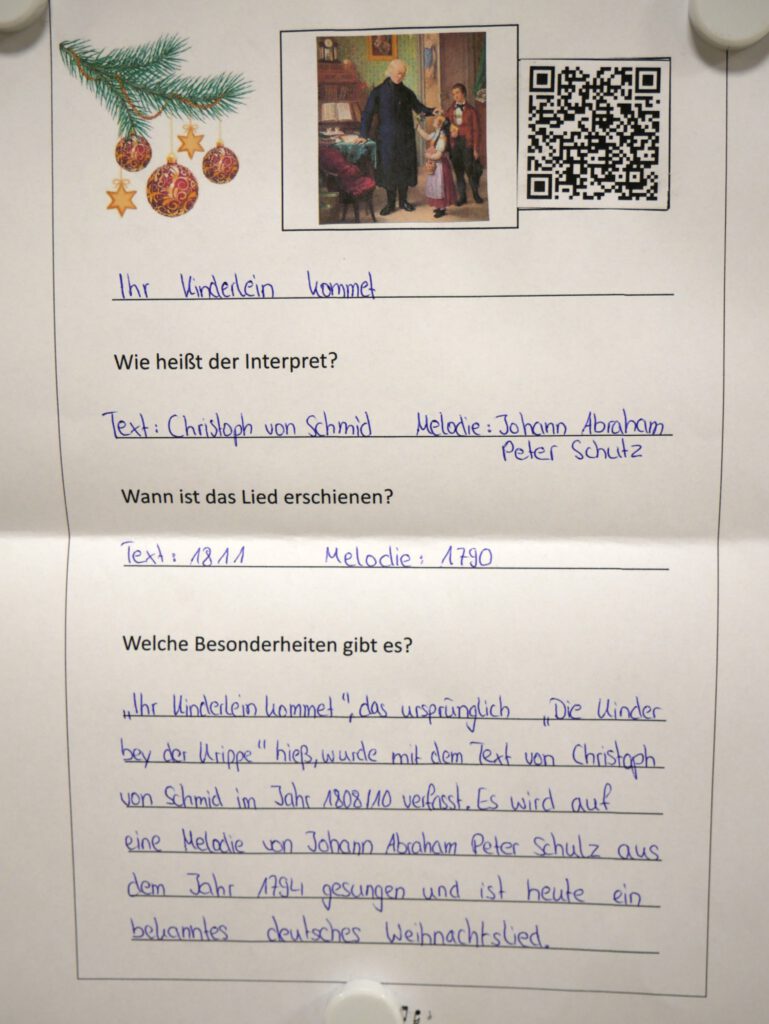 Ihr Kinderlein kommet
Wie heißt der Interpret?
Text: Christoph von Schmid Melodie: Johann Abraham
Peter Schutz
Wann ist das Lied erschienen?
Text: 1811 Melodie: 1790
Welche Besonderheiten gibt es?
„Ihr Kinderlein kommet“, das ursprünglich „Die Kinder
bey der Krippe“ hieß, wurde mit dem Text von Christoph
von Schmid im Jahr 1808/10 verfasst. Es wird auf
eine Melodie von Johann Abraham Peter Schulz aus
dem Jahr 1794 gesungen und ist heute ein
bekanntes deutsches Weihnachtslied.